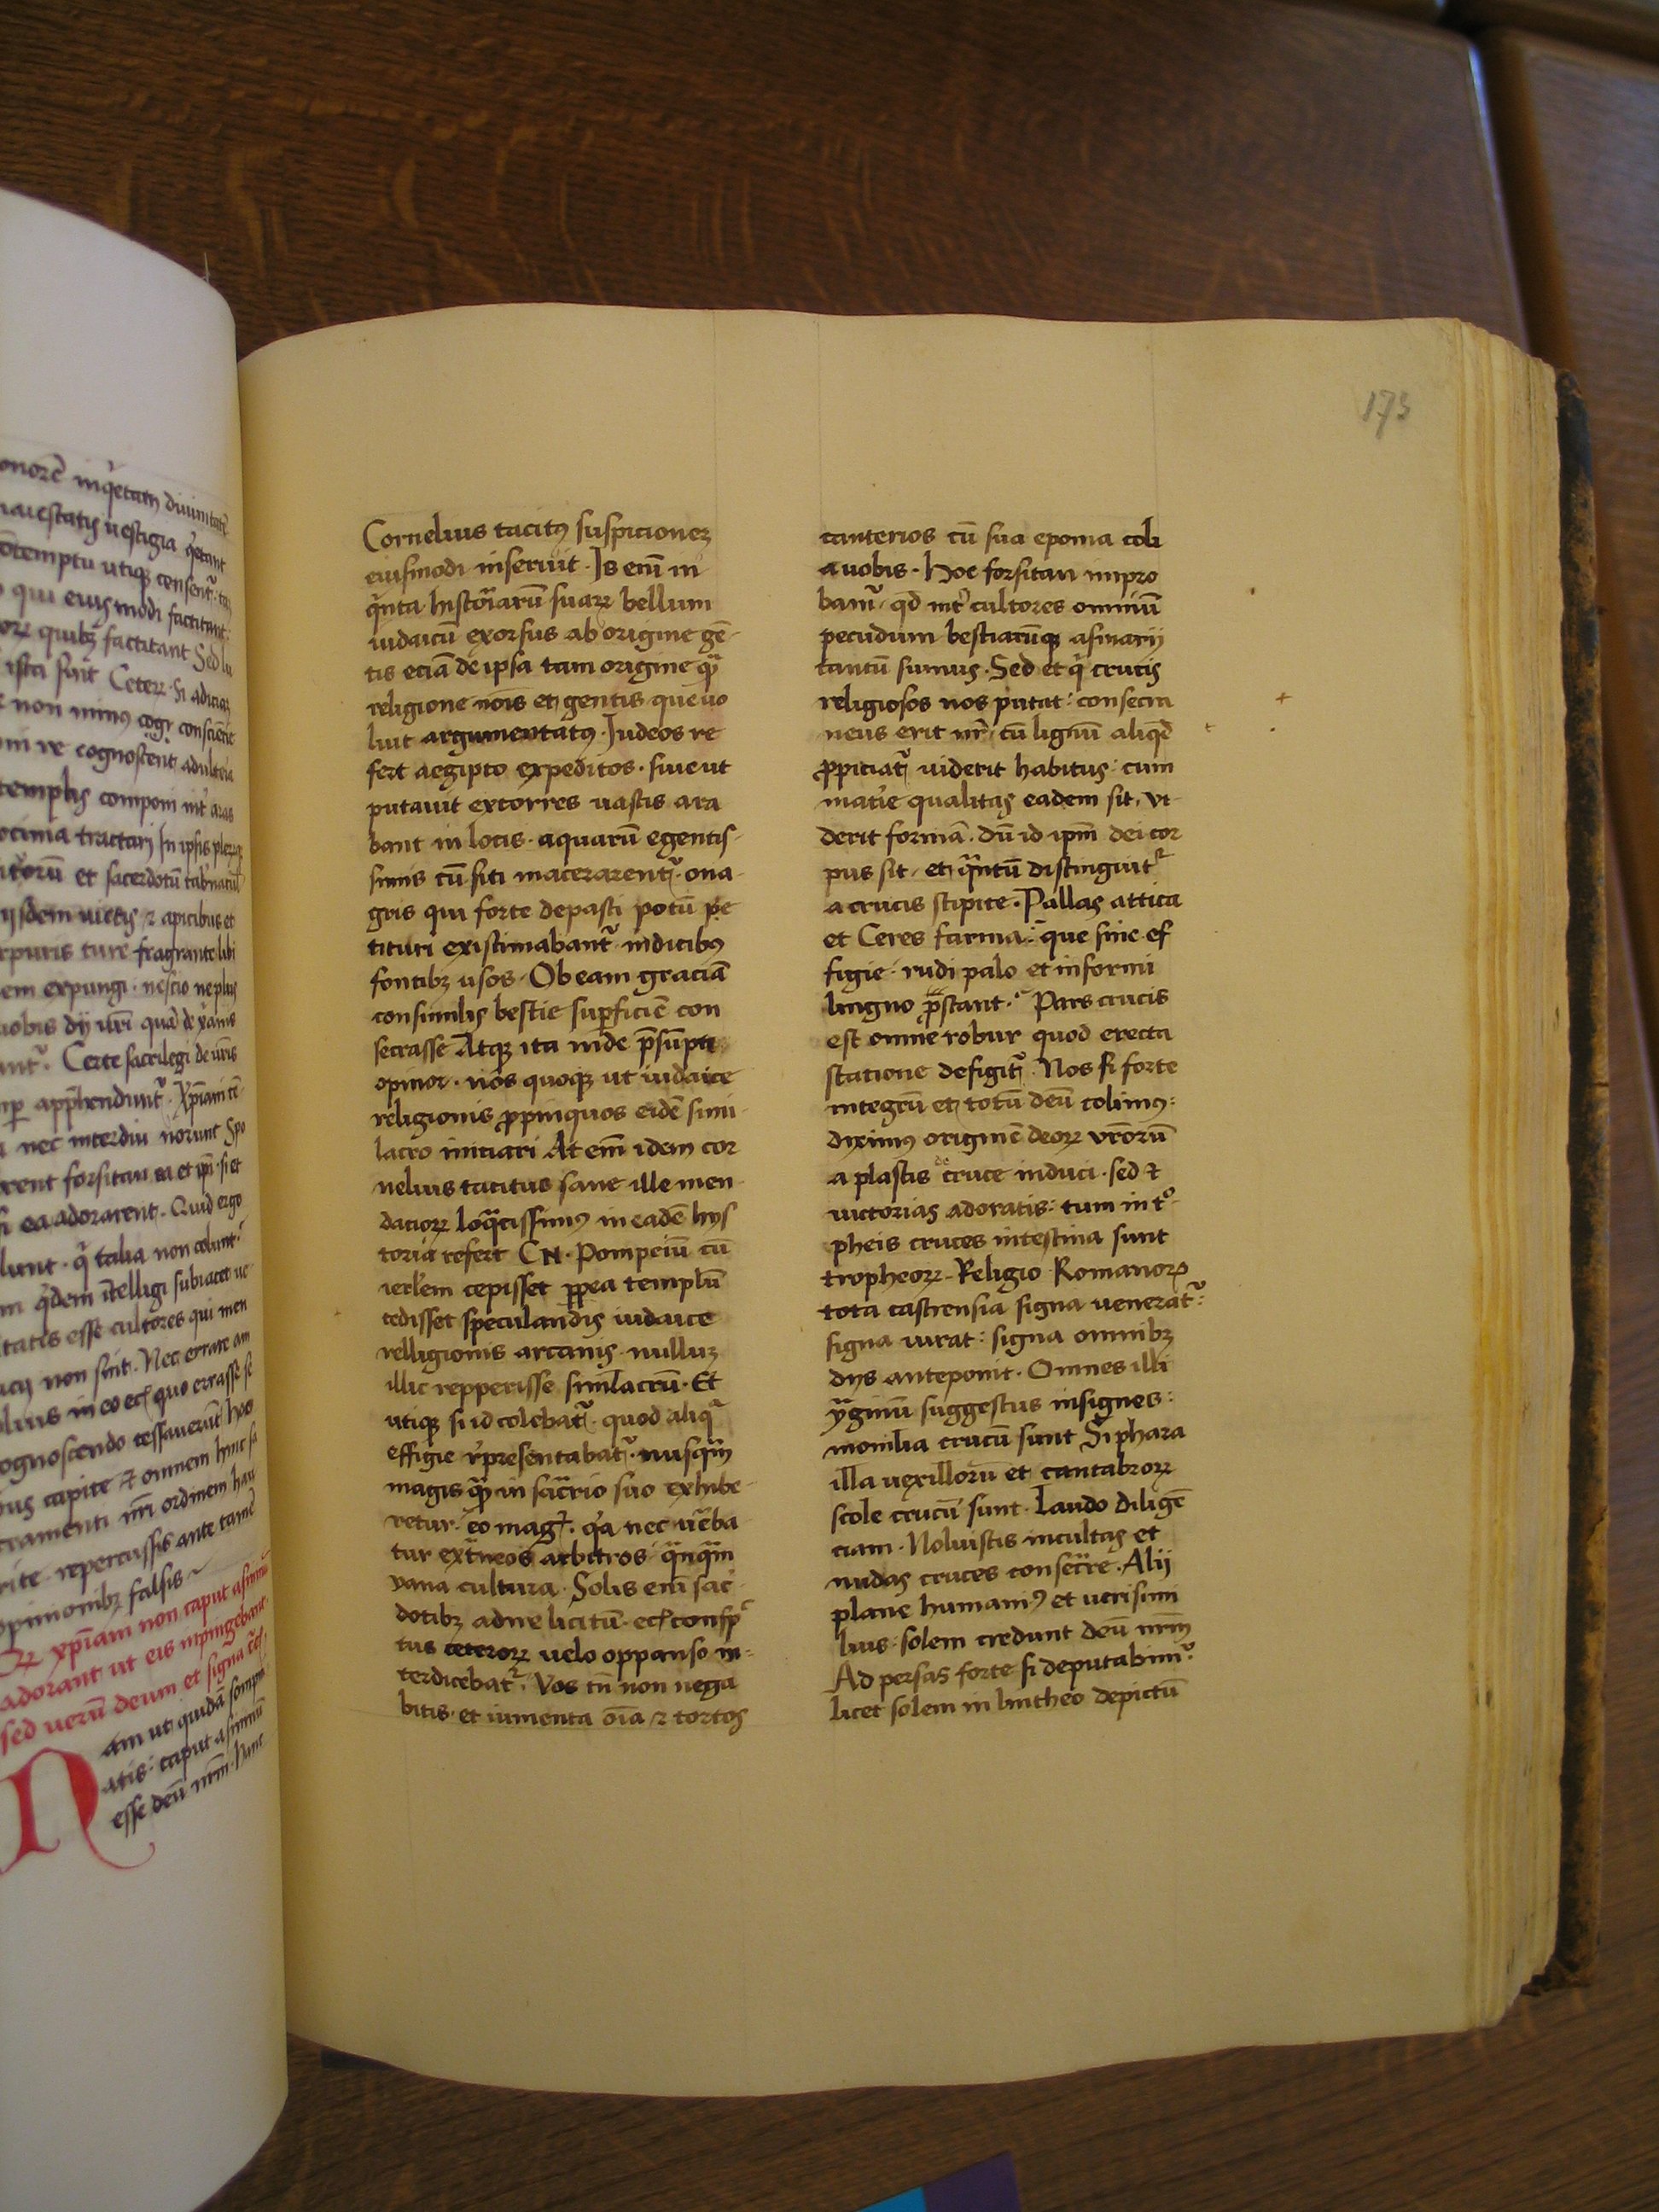 onorē inq̇etam diuinitatē
maiestatis uestigia q̇etant
ōtemptu utiqꝫ censent᷑
qui eiusmodi factitant
quibꝫ factitant Sed
isti sunt Ceterꝝ. si adiciaꝫ
non minꝰ cogi conscientie
re cognoscent adulteria
templis componi int̓ aras
tractari In ipsis
et sacerdotū tab̓nacul
ijsdem uictis ⁊ apicibus et
purpuris ture fragrante libi
em expungi. nescio ne plus
uobis dij ur̄i quā de xanis
Certe sacrilegi de ur̄is
app̄hendunt᷑. Xp̄iani
nec interdiu norunt Spo
forsitan ea et ip̄i. si et
si ea adorarent. Quid ergo
q̇ talia non colunt᷑
q̇dem ītelligi subiacet ue
tatis esse cultores qui men
non sint. Nec errare am
in eo ecꝫ quo errasse se
cognoscendo cessauerūt hoc
capite ⁊ omnem hinc sa
cramenti nr̄i ordinem hau
rite repercussis ante tamē
opinionibꝫ falsis
xp̄iani non caput asininū
adorant ut eis inpingebant
sed uerū deum et signa
Nam ut quidā sompni
atis: caput asininū
esse deū nr̄m. hanc
173
Cornelius tacitꝰ suspicioneꝫ
eiusmodi inseruit. Is eni᷑ in
q̇nta historiarū suaꝝ bellum
iudaicū exorsus ab origine gē-
tis eciā de ipsa tam origine qᷓꝫ
religione nōis et gentis que uo
luit argumentatꝰ. Iudeos re
fert aegipto expeditos. siue ut
putauit extorres uastis ara
bant in locis. aquarū egentis-
simis cū siti macerarent᷑. ona-
gris qui forte depasti potū pe
tituri existimabant᷑ indicibꝰ
fontibꝫ usos. Ob eam graciā
consimilis bestie suꝑficiē con
secrasse Atqꝫ ita inde p̄sūpti
opinor. nos quoqꝫ ut iudaice
religionis ꝓpinquos eidē simi-
lacro initiari At eni᷑ idem cor
nelius tacitus sane ille men-
daciorꝝ loqᷓcissimꝰ in eadē hys
toria refert CN. Pompeiū cū
ierl̄em cepisset ꝓpea templū
tedisset speculandis iudaice
relligionis arcanis nulluꝫ
illic repperisse simlacrū. Et
utiqꝫ si id colebat᷑. quod aliqᷓ
effigie r̓presentabat᷑. nusqᷓm
magis qᷓꝫ in sac̓rio suo exhibe-
retur. eo magꝭ. q̇a nec ue᷑ba
tur ext᷑neos arbitros qᷓnqᷓm
uana cultura. Solis eni᷑ sac̓
dotibꝫ adire licitū. ecꝫ consp̓c
tus ceterorꝝ uelo oppanso in-
terdicebat᷑. Vos tn̄ non nega
bitis. et iumenta ōia ⁊ tortos
canterios cū sua epoma coli
a uobis. Hoc forsitan impro
bam᷑. qd̄ int̓ cultores omniū
pecudum bestiarūqꝫ asinarij
tantū sumus. Sed et q̇ crucis
religiosos nos putat: consecra
neus erit nr̄. cū lignū aliqd̄
ꝓpiciat᷑ uiderit habitus: cum
mat̓ie qualitas eadem sit. vi-
derit formā. dū id ip̄m dei cor
pus sit. et qᷓntū distinguit᷑
a crucis stipite. Pallas attica
et Ceres farma: que sine ef
figie. rudi palo et informi
lingno p̄stant. Pars crucis
est omne robur quod erecta
statione defigit᷑. Nos si forte
integrū et totū deū colimꝰ:
diximꝰ originē deorꝝ vr̄orū
a plastis de cruce induci. sed ⁊
uictorias adoratis: cum in t°-
pheis cruces intestina sunt
tropheorꝝ. Religio Romanorꝝ
tota castrensia signa uenerat᷑:
signa iurat: signa omnibꝫ
dijs anteponit. Omnes illi
ymᷓginū suggestus insignes:
monilia crucū sunt Siphara
illa uexillorū et cantabrorꝝ
stole crucū sunt. Laudo diligē
ciam. Noluistis incultas et
nudas cruces consec̓re. Alij
plane humaniꝰ et uerisimi
lius. solem credunt deū nr̄m
Ad persas forte si deputabim᷑.
licet solem in lintheo depictū